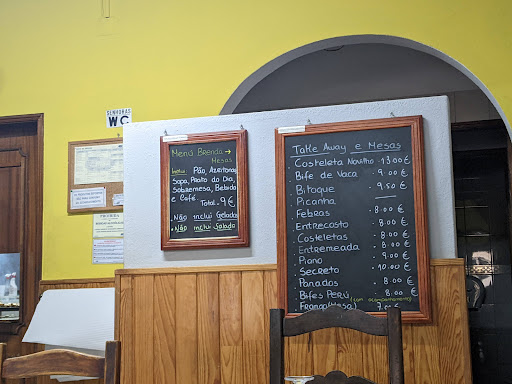 SENHORAS
WC
Menu Brenda →
Mesas
Inclui Pão, Azeitonas
Sopa, Prato do Dia,
Sobremesa, Bebida
e Café. Total: 9 €
.Não inclui Gelados
.Não inclui Salada
Take Away e Mesas
Costeleta Novilho .13.00 €
Bife de Vaca . 9.00 €
Bitoque . 9.50 €
Picanha
Febras . 8.00 €
Entrecosto . 8.00 €
Costeletas . 8.00 €
Entremeada . 8.00 €
Piano . 9.00 €
Secreto . 10.00 €
Panados . 8.00 €
Bifes Perú (com acompanhamento) 8.00 €
Frango (Mesa)